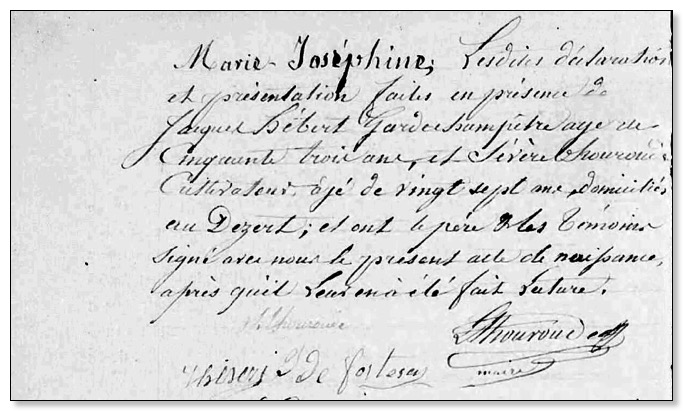 Marie Joséphine, Lesdites déclaration
et présentation faites en présence de
Jacques Hébert Garde champêtre age de
Cinquante trois ans, et Sévère Thouroude
Cultivateur âgé de vingt sept ans, domiciliés
au Dezert; et ont le père & les témoins
signé avec nous le présent acte de naissance,
après qu'il Leur en à été fait Lecture.
Thouroude
maire